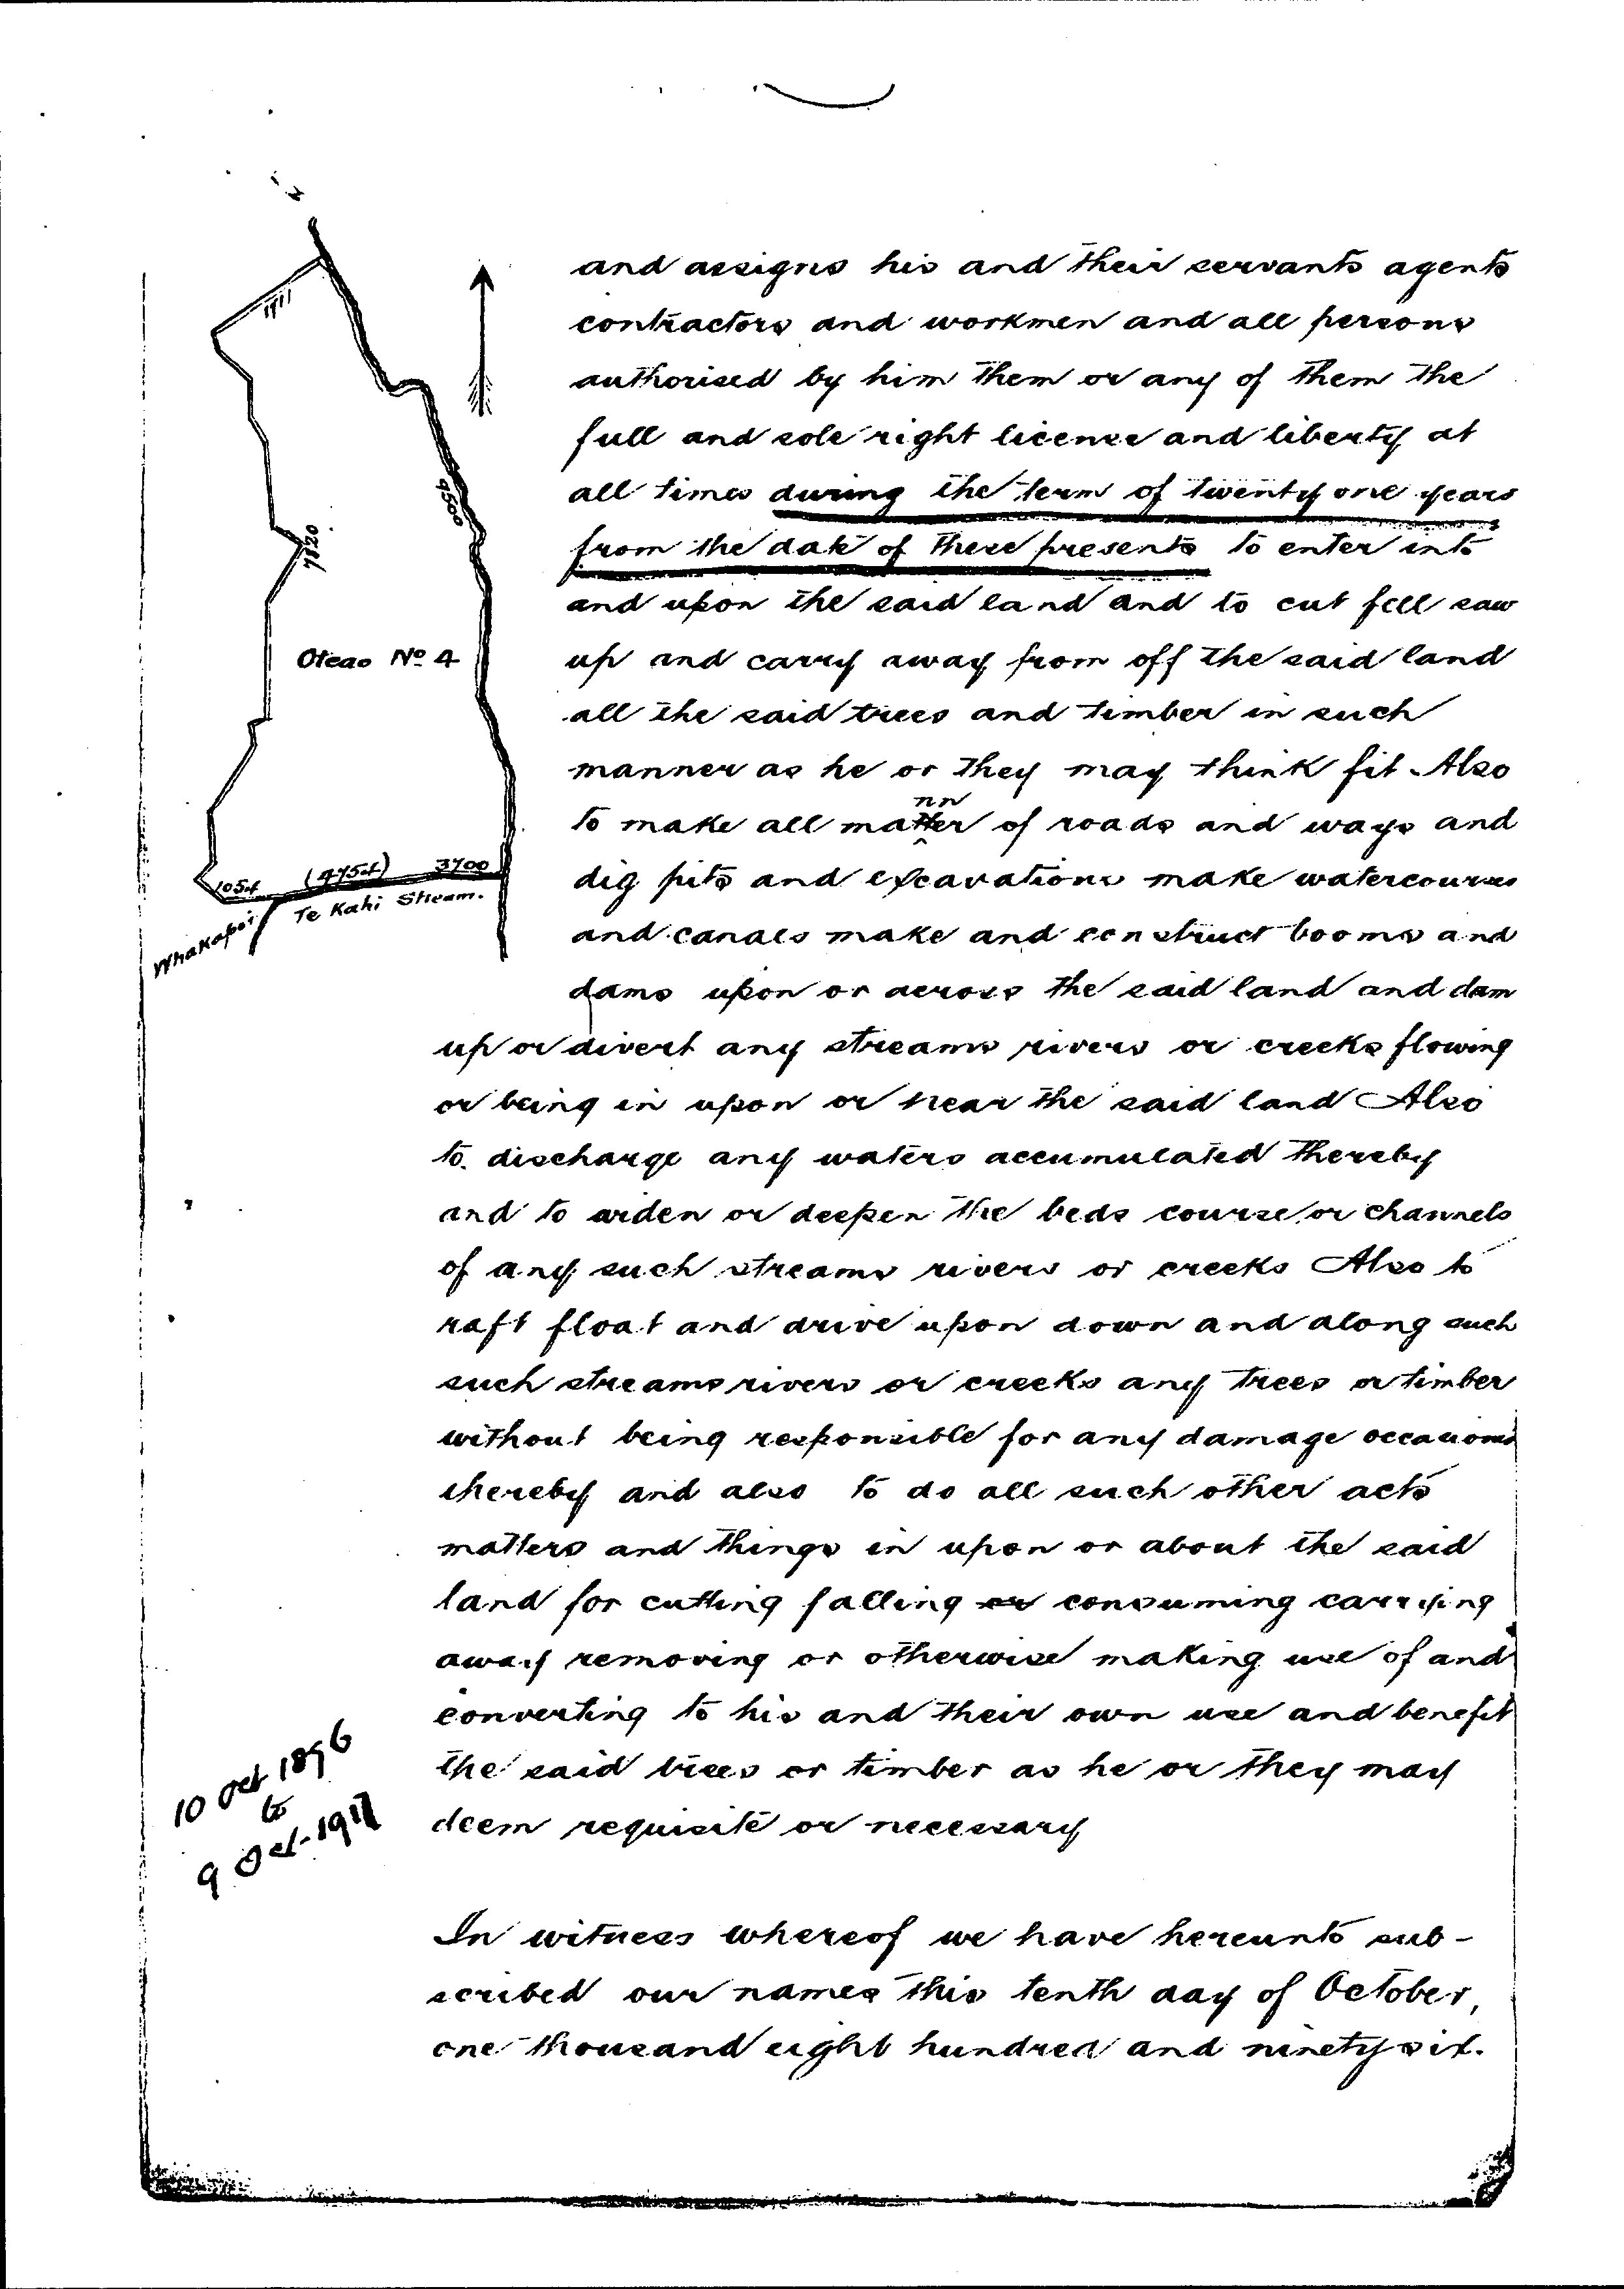 1711
9500
7820
Oteao No 4
1054 (4754) 3700
Te Kahi Stream.
Whakapoi
and assigns his and their servants agents
contractors and workmen and all persons
authorised by him them or any of them the
full and sole right license and liberty at
all times during the term of twenty one years
from the date of these presents to enter into
and upon the said land and to cut fell saw
up and carry away from off the said land
all the said trees and timber in such
manner as he or they may think fit Also
nn
to make all matter of roads and ways and
dig pits and excavations make watercourses
and canals make and construct booms and
dams upon or across the said land and dam
up or divert any streams rivers or creeks flowing
or being in upon or near the said land Also
to discharge any waters accumulated thereby
and to widen or deepen the beds course or channels
of any such streams rivers or creeks Also to
raft float and drive upon down and along such
such streams rivers or creeks any trees or timber
without being responsible for any damage occasioned
thereby and also to do all such other acts
matters and things in upon or about the said
land for cutting falling or consuming carrying
away removing or otherwise making use of and
converting to his and their own use and benefit
the said trees or timber as he or they may
deem requisite or necessary
10 Oct 1896
to
9 Oct. 1917
In witness whereof we have hereunto sub-
scribed our names this tenth day of October,
one thousand eight hundred and ninety six.